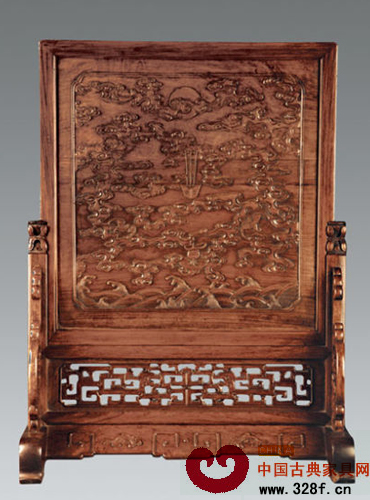 中国古典家具网
www.328f.cn